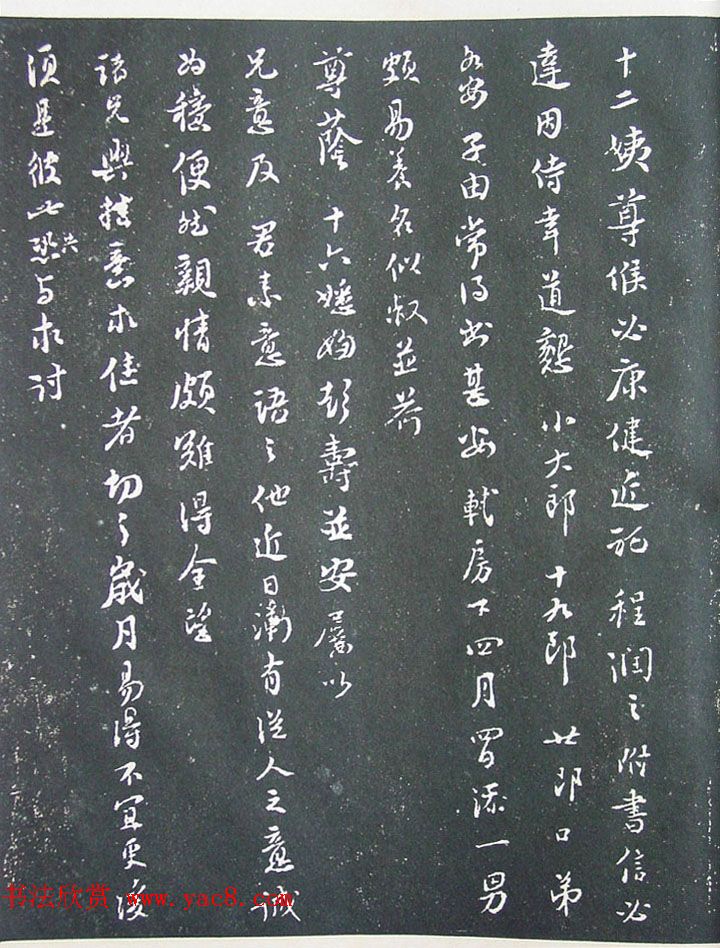 十二姨尊候必康健近託程潤之附書信必
達因侍韋道懇小大郎十九郎廿郎口弟
各安子由常得書甚安軾房下四月間添一男
頗易養名似叔並荷
尊蔭十六嫂婦彭壽並安屬以
兄意及君素意語之他近日漸有從人之意誠
為穩便然親情頗難得全望
諸兄與掛意求佳者切切歲月易得不宜更後
須是彼此共與求討
书法欣赏 www.yac8.com